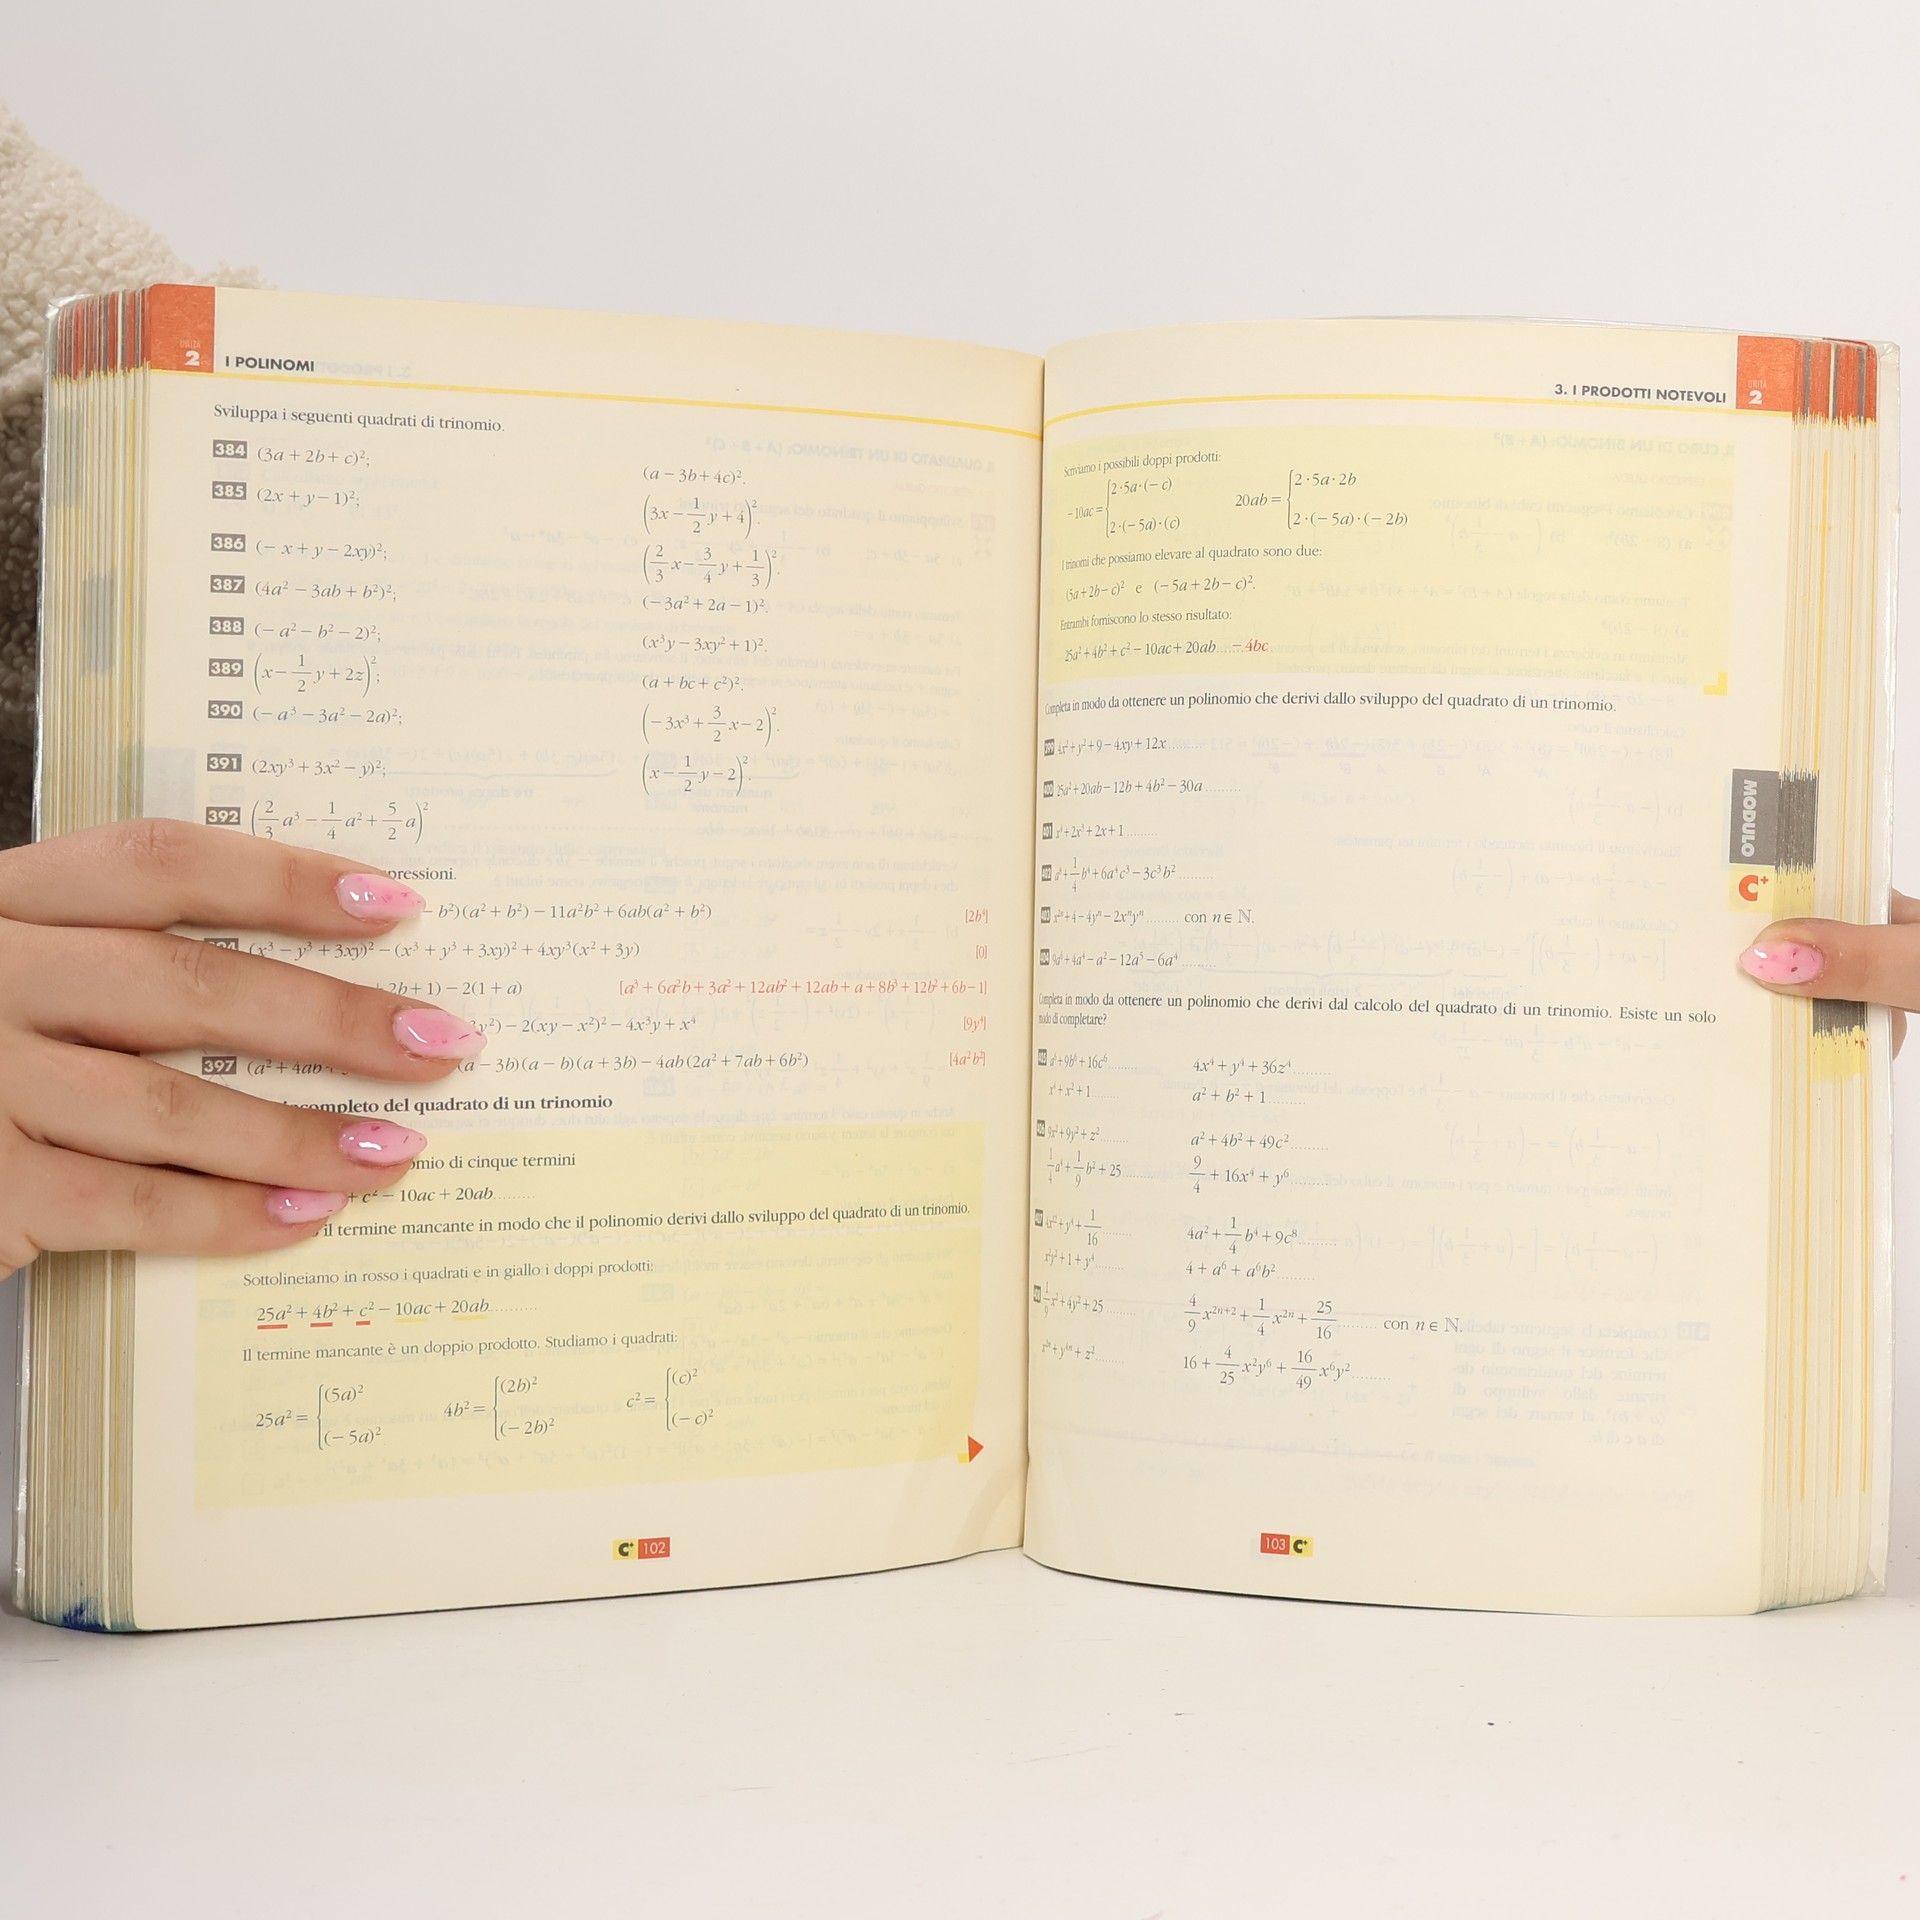 UNITÀ 2 I POLINOMI
Sviluppa i seguenti quadrati di trinomio.
384 (3a + 2b + c)²; (a − 3b + 4c)².
385 (2x + y − 1)²; (3x − 1/2 y + 4)².
386 (− x + y − 2xy)²; (2/3 x − 3/4 y + 1/3)².
387 (4a² − 3ab + b²)²; (−3a² + 2a − 1)².
388 (− a² − b² − 2)²; (x³y − 3xy² + 1)².
389 (x − 1/2 y + 2z)²; (a + bc + c²)².
390 (− a³ − 3a² − 2a)²; (−3x³ + 3/2 x − 2)².
391 (2xy³ + 3x² − y)²; (x − 1/2 y − 2)².
392 (2/3 a³ − 1/4 a² + 5/2 a)²
pressioni.
− b²)(a² + b²) − 11a²b² + 6ab(a² + b²) [2b⁴]
394 (x³ − y³ + 3xy)² − (x³ + y³ + 3xy)² + 4xy³(x² + 3y) [0]
+ 2b + 1) − 2(1 + a) [a³ + 6a²b + 3a² + 12ab² + 12ab + a + 8b³ + 12b² + 6b − 1]
y²) − 2(xy − x²)² − 4x³y + x⁴ [9y⁴]
397 (a² + 4ab + (a − 3b)(a − b)(a + 3b) − 4ab(2a² + 7ab + 6b²) [4a²b²]
incompleto del quadrato di un trinomio
omio di cinque termini
+ c² − 10ac + 20ab..........
il termine mancante in modo che il polinomio derivi dallo sviluppo del quadrato di un trinomio.
Sottolineiamo in rosso i quadrati e in giallo i doppi prodotti:
25a² + 4b² + c² − 10ac + 20ab..........
Il termine mancante è un doppio prodotto. Studiamo i quadrati:
25a² = {(5a)² (− 5a)² 4b² = {(2b)² (− 2b)² c² = {(c)² (− c)²
C+ 102
3. I PRODOTTI NOTEVOLI UNITÀ 2
Scriviamo i possibili doppi prodotti:
−10ac = {2·5a·(− c) 2·(− 5a)·(c) 20ab = {2·5a·2b 2·(− 5a)·(− 2b)
I trinomi che possiamo elevare al quadrato sono due:
(5a + 2b − c)² e (− 5a + 2b − c)².
Entrambi forniscono lo stesso risultato:
25a² + 4b² + c² − 10ac + 20ab ... − 4bc
Completa in modo da ottenere un polinomio che derivi dallo sviluppo del quadrato di un trinomio.
399 4x² + y² + 9 − 4xy + 12x..........
400 25a² + 20ab − 12b + 4b² − 30a..........
401 x⁴ + 2x³ + 2x + 1..........
402 a⁸ + 1/4 b⁴ + 6a⁴c³ − 3c³b²..........
403 x²ⁿ + 4 − 4yⁿ − 2xⁿyⁿ.......... con n ∈ ℕ.
404 9a⁶ + 4a⁴ − a² − 12a⁵ − 6a⁴..........
Completa in modo da ottenere un polinomio che derivi dal calcolo del quadrato di un trinomio. Esiste un solo
modo di completare?
405 a⁶ + 9b⁶ + 16c⁶.......... 4x⁴ + y⁴ + 36z⁴..........
x⁴ + x² + 1.......... a² + b² + 1..........
406 9x² + 9y² + z².......... a² + 4b² + 49c²..........
1/4 a⁴ + 1/9 b² + 25.......... 9/4 + 16x⁴ + y⁶..........
407 4x¹² + y⁴ + 1/16.......... 4a² + 1/4 b⁴ + 9c⁸..........
x²y² + 1 + y⁴.......... 4 + a⁶ + a⁶b²..........
1/9 x² + 4y² + 25.......... 4/9 x²ⁿ⁺² + 1/4 x²ⁿ + 25/16.......... con n ∈ ℕ.
x²ⁿ + y⁴ⁿ + z².......... 16 + 4/25 x²y⁶ + 16/49 x⁶y²..........
MODULO
C+
103 C+